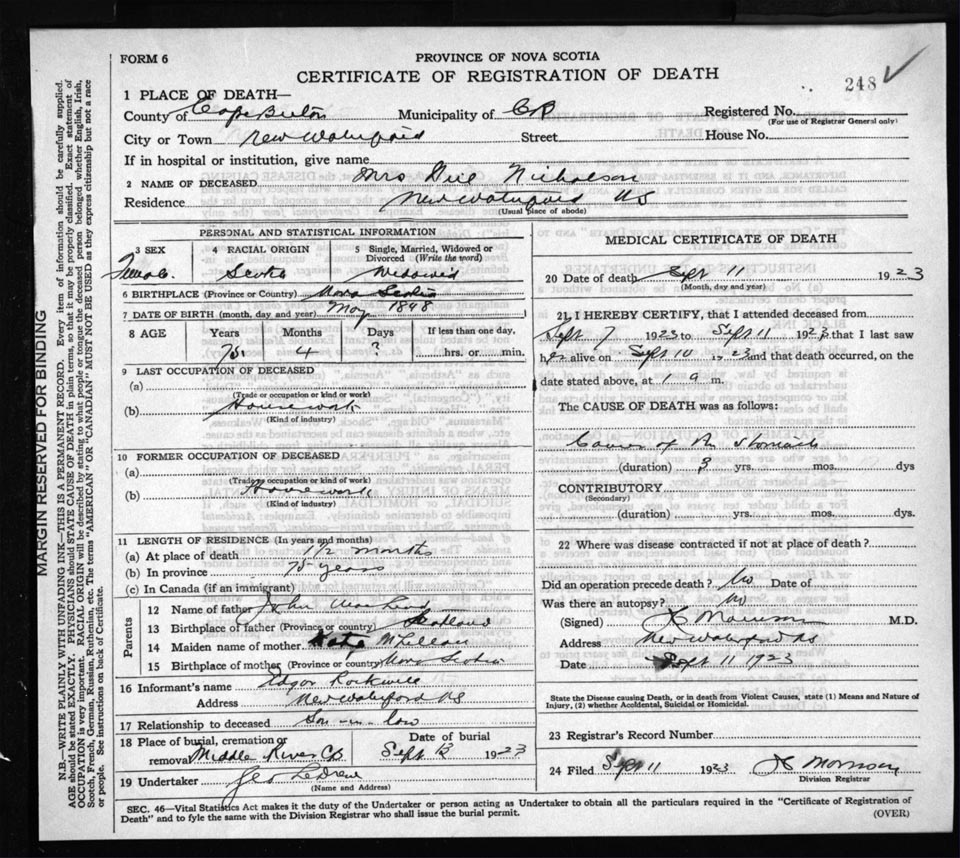 FORM 6
PROVINCE OF NOVA SCOTIA
CERTIFICATE OF REGISTRATION OF DEATH
248
1 PLACE OF DEATH—
County of Cape Breton Municipality of CB Registered No.
(For use of Registrar General only)
City or Town New Waterford Street House No.
If in hospital or institution, give name
2 NAME OF DECEASED Mrs Nicholson
Residence New Waterford NS
(Usual place of abode)
PERSONAL AND STATISTICAL INFORMATION
3 SEX 4 RACIAL ORIGIN 5 Single, Married, Widowed or
Divorced (Write the word)
Scotch Widowed
6 BIRTHPLACE (Province or Country) Nova Scotia
7 DATE OF BIRTH (month, day and year) May 1848
8 AGE Years Months Days If less than one day,
75 4 ? hrs. or min.
9 LAST OCCUPATION OF DECEASED
(a)
(Trade or occupation or kind of work)
(b) Housework
(Kind of industry)
10 FORMER OCCUPATION OF DECEASED
(a)
(Trade or occupation or kind of work)
(b) Housework
(Kind of industry)
11 LENGTH OF RESIDENCE (In years and months)
(a) At place of death 1 1/2 months
(b) In province 75 years
(c) In Canada (if an immigrant)
Parents
12 Name of father John MacLeod
13 Birthplace of father (Province or country) Scotland
14 Maiden name of mother McLellan
15 Birthplace of mother (Province or country) Nova Scotia
16 Informant's name Edgar Rockwell
Address New Waterford NS
17 Relationship to deceased Son-in-law
18 Place of burial, cremation or Date of burial
removal Middle River CB Sept 13 1923
19 Undertaker Geo
(Name and Address)
MEDICAL CERTIFICATE OF DEATH
20 Date of death Sept 11 1923
(Month, day and year)
21 I HEREBY CERTIFY, that I attended deceased from
Sept 7 1923 to Sept 11 1923 that I last saw
her alive on Sept 10 1923 and that death occurred, on the
date stated above, at 1 a m.
The CAUSE OF DEATH was as follows:
Cancer of the stomach
(duration) 3 yrs. mos. dys
CONTRIBUTORY
(Secondary)
(duration) yrs. mos. dys.
22 Where was disease contracted if not at place of death?
Did an operation precede death? No Date of
Was there an autopsy? No
(Signed) Morrison M.D.
Address New Waterford NS
Date Sept 11 1923
State the Disease causing Death, or in death from Violent Causes, state (1) Means and Nature of
Injury, (2) whether Accidental, Suicidal or Homicidal.
23 Registrar's Record Number
24 Filed Sept 11 1923 Morrison
Division Registrar
SEC. 46—Vital Statistics Act makes it the duty of the Undertaker or person acting as Undertaker to obtain all the particulars required in the "Certificate of Registration of
Death" and to fyle the same with the Division Registrar who shall issue the burial permit.
(OVER)
MARGIN RESERVED FOR BINDING
N.B.—WRITE PLAINLY WITH UNFADING INK—THIS IS A PERMANENT RECORD. Every item of information should be carefully supplied.
AGE should be stated EXACTLY. PHYSICIANS should STATE CAUSE OF DEATH in plain terms, so that it may be properly classified. Exact statement of
OCCUPATION is very important. RACIAL ORIGIN will be described by stating to what people or tongue the deceased person belonged whether English, Irish,
Scotch, French, German, Russian, Ruthenian, etc. The terms "AMERICAN" OR "CANADIAN" MUST NOT BE USED as they express citizenship but not a race
or people. See instructions on back of Certificate.